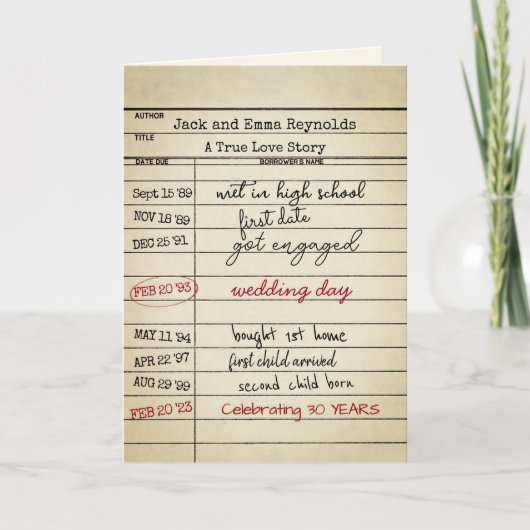 AUTHOR
Jack and Emma Reynolds
TITLE
A True Love Story
DATE DUE BORROWER'S NAME
Sept 15 '89 met in high school
NOV 18 '89 first date
DEC 25 '91 got engaged
FEB 20 '93 wedding day
MAY 11 '94 bought 1st home
APR 22 '97 first child arrived
AUG 29 '99 second child born
FEB 20 '23 Celebrating 30 YEARS